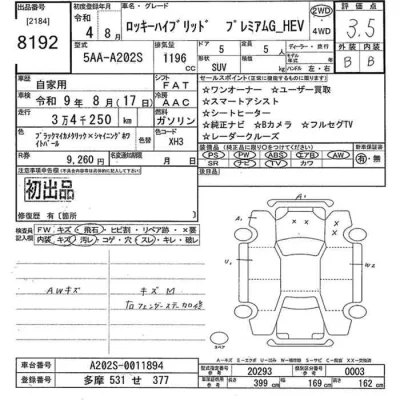 出品番号 初度登録年月 車名・グレード 評価点
[2184] 令和 4年 8月 ロッキーハイブリッド プレミアムG_HEV 2WD 4WD 3.5
8192 型式 排気量 ドア 形状 定員 ディーラー・並行 外装 内装
5AA-A202S 1196 cc 5 SUV 5 B B
車歴 自家用 シフト FAT セールスポイント
車検 令和 9年 8月(17日) 冷房 AAC ☆ワンオーナー ☆ユーザー買取
☆スマートアシスト
走行 3万4千250 km 燃料 ガソリン ☆シートヒーター
☆純正ナビ ☆Bカメラ ☆フルセグTV
色 ブラックマイカメタリック×シャイニングホワイトパール 色コード XH3 ☆レーダークルーズ
R券 9,260 円 名変期限 月 日
装備 新車保証書
PS PW ABS エアB AW 有・無
SR ナビ TV カワ
注意事項申告欄
初出品
後日品
修復歴 有 [箇所 ]
検査員記入欄 FW キズ・飛石・ヒビ割・リペア跡・×要
内装 キズ・汚レ・コゲ・穴・スレ・キレ・破レ
AWキズ キズM
右フェンダーステー
A1
A1
U1
W2
車台番号 A202S-0011894
登録番号 多摩 531 せ 377
型式指定番号 20293 類別区分番号 0003
長さ 399 cm 幅 169 cm 高さ 162 cm